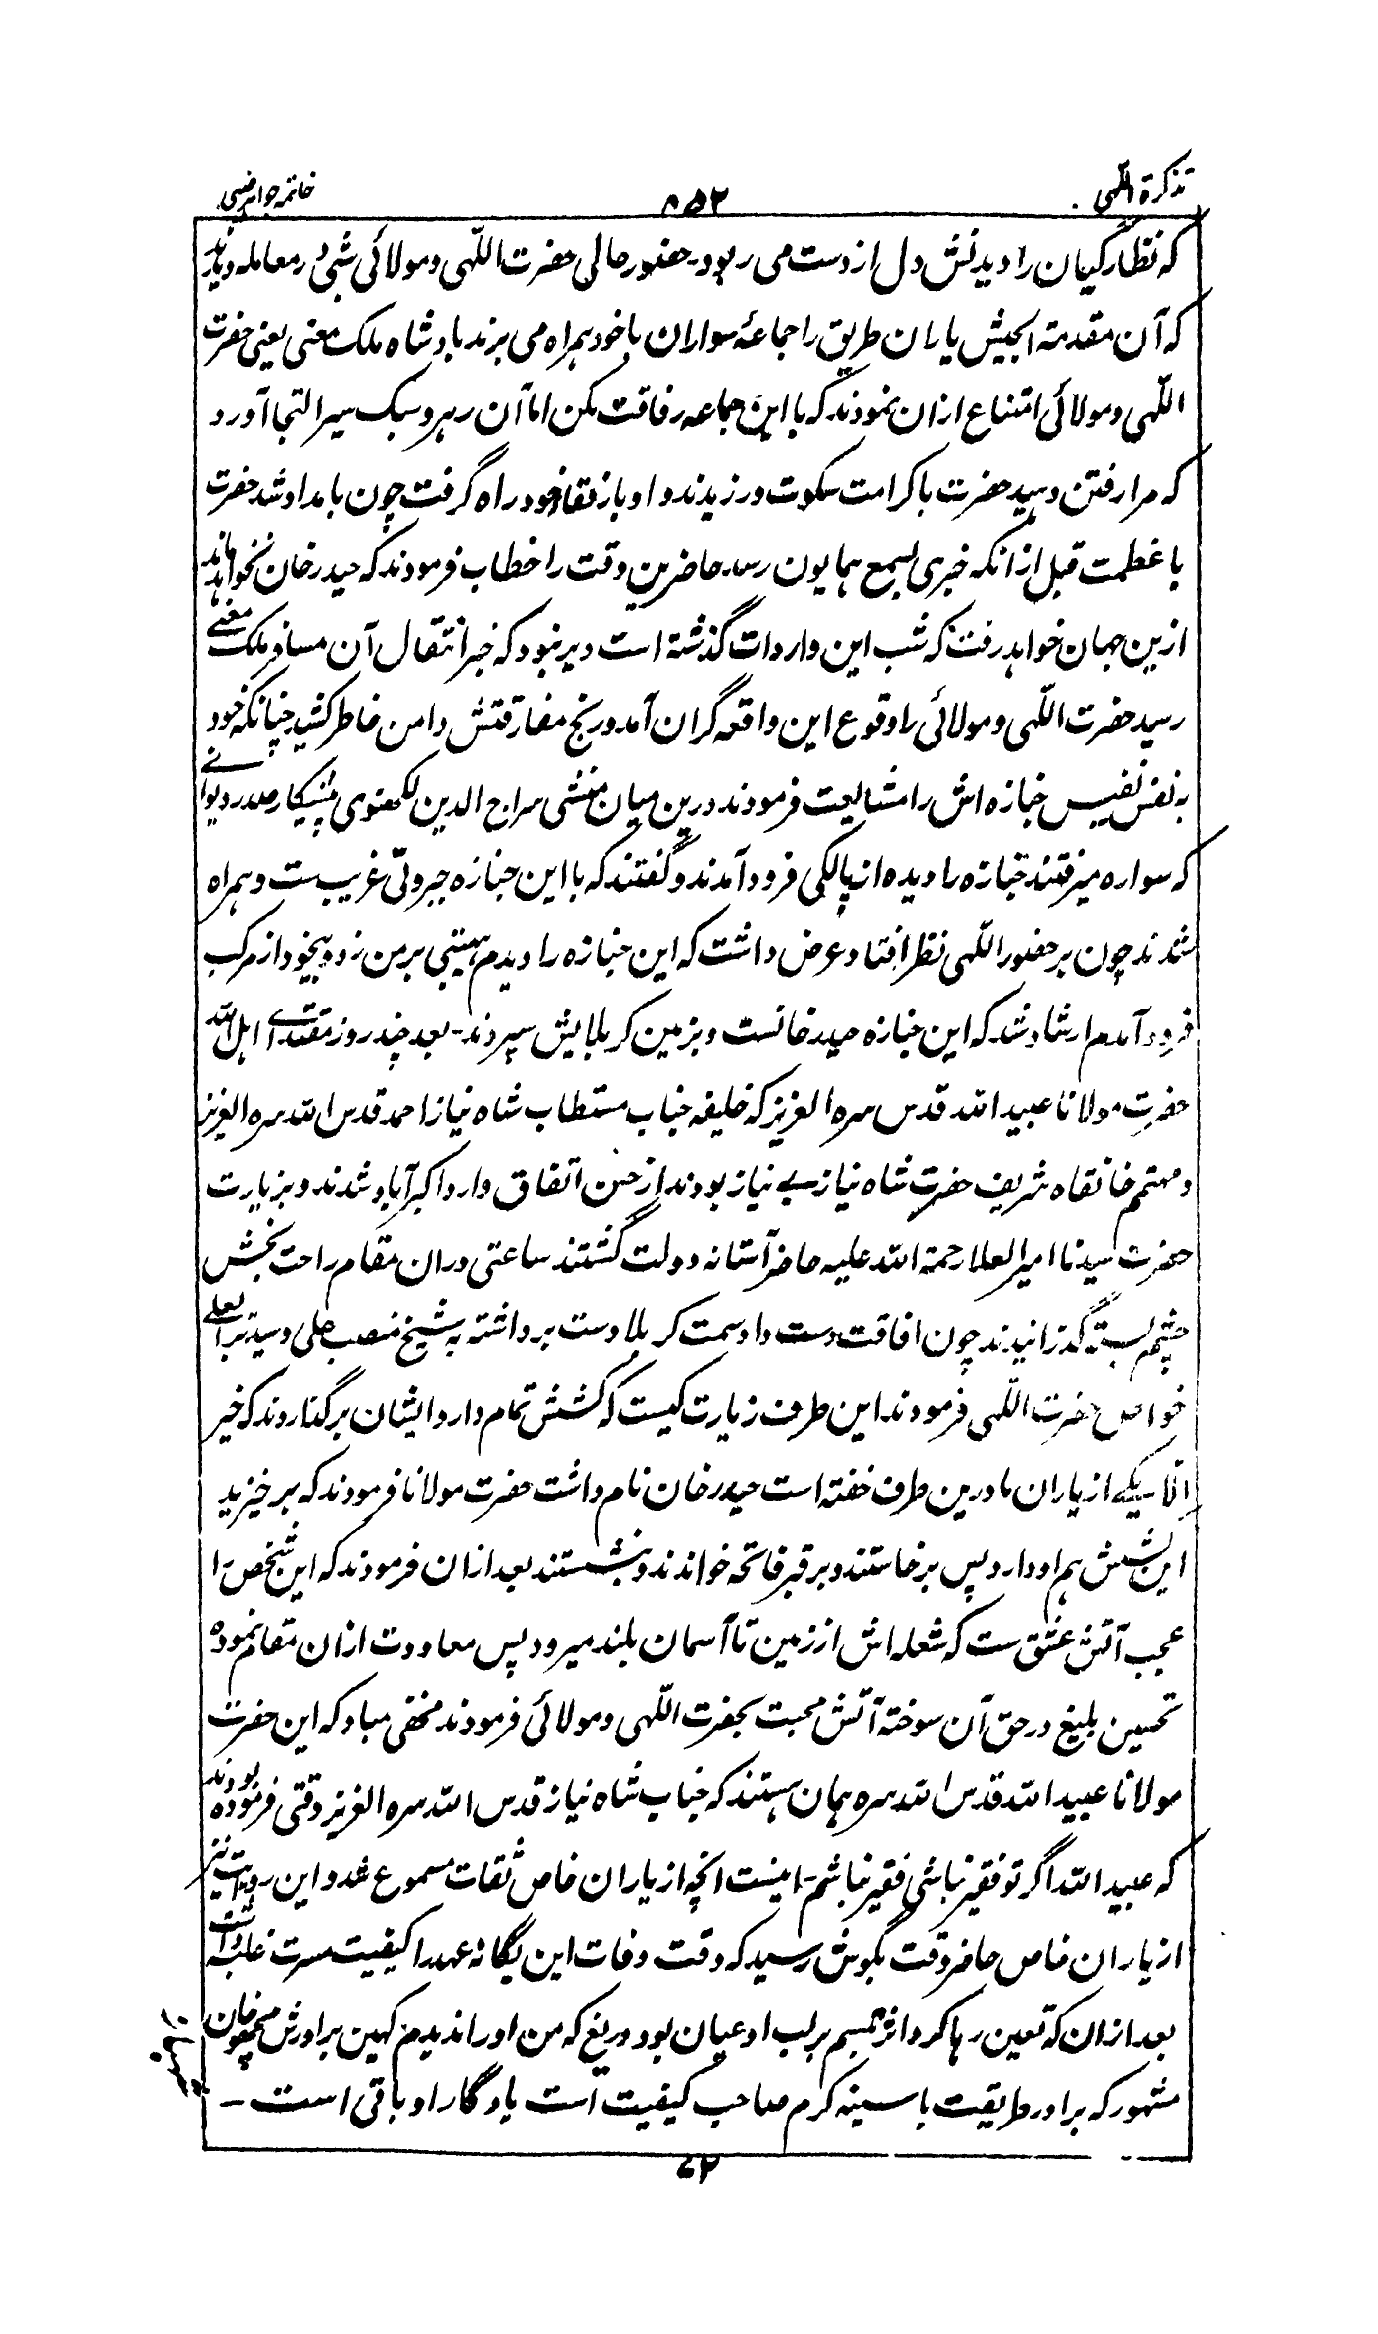 تذکرة اللّٰهی
۵۵۲
خاتمه جواهر غیبی
که نظارگیان را دیدنش دل از دست می ربود - حضور عالی حضرت اللّٰهی و مولائی شبی در معامله دیدند
که آن مقدمة الجیش یاران طریق را جماعهٔ سواران با خود همراه می برند بادشاه ملک معنی یعنی حضرت
اللّٰهی و مولائی امتناع ازان نمودند که با این جماعه رفاقت مکن اما آن رهرو سبک سیر التجا آورد
که مرا رفتن دهید حضرت با کرامت سکوت ورزیدند و او با رفقا خود راه گرفت چون بامداد شد حضرت
با عظمت قبل ازانکه خبری بسمع همایون رسد حاضرین وقت را خطاب فرمودند که حیدر خان نخواهد ماند
ازین جهان خواهد رفت که شب این واردات گذشته است دیر نبود که خبر انتقال آن مسافر ملک معنی
رسید حضرت اللّٰهی و مولائی را وقوع این واقعه گران آمد و رنج مفارقتش دامن خاطر کشید چنانکه خود
به نفس نفیس جنازه اش را مشایعت فرمودند درین میان منشی سراج الدین لکهنوی پیشکار صدر دیوانی
که سواره میرفتند جنازه را دیده از پالکی فرود آمدند و گفتند که با این جنازه جبروتی غریب ست و همراه
شدند چون بر حضور اللّٰهی نظر افتاد عرض داشت که این جنازه را دیدم هیبتی بر من زد و بیخود از مرکب
فرود آمدم ارشاد شد که این جنازه حیدر خانست و بزمین کربلایش سپردند - بعد چند روز مقتدای اهل الله
حضرت مولانا عبید الله قدس سره العزیز که خلیفه جناب مستطاب شاه نیاز احمد قدس الله سره العزیز
و مهتمم خانقاه شریف حضرت شاه نیاز بے نیاز بودند از حسن اتفاق وارد اکبر آباد شدند و بزیارت
حضرت سیدنا امیر العلا رحمة الله علیه حاضر آستانه دولت گشتند ساعتی دران مقام راحت بخش
چشم بسته گذرانیدند چون افاقت دست داد سمت کربلا دست برداشته به شیخ منصب علی و سید تراب علی
خواص حضرت اللّٰهی فرمودند این طرف زیارت کیست که کشش تمام دارد ایشان برگذاردند که خیر
اِلّا یکے از یاران ما درین طرف خفته است حیدر خان نام داشت حضرت مولانا فرمودند که برخیزید
این کشش هم او دارد پس برخاستند و بر قبر فاتحه خواندند و بنشستند بعد ازان فرمودند که این شخص را
عجب آتش عشق ست که شعله اش از زمین تا آسمان بلند میرود پس معاودت ازان مقام نموده
تحسین بلیغ در حق آن سوخته آتش محبت بحضرت اللّٰهی و مولائی فرمودند مخفی مباد که این حضرت
مولانا عبید الله قدس الله سره همان هستند که جناب شاه نیاز قدس الله سره العزیز وقتی فرموده بودند
که عبید الله اگر تو فقیر نباشی فقیر نباشم - اینست آنچه از یاران خاص ثقات مسموع شد و این روایت نیز
از یاران خاص حاضر وقت بگوش رسید که وقت وفات این یگانهٔ عهد را کیفیت مسرت غالب داشت
بعد ازان که تعین رها کرد اثر تبسم بر لب او عیان بود دریغ که من او را ندیدم کهین برادرش خان
مشهور که برادر طریقت با سینه گرم صاحب کیفیت است یادگار او باقی است —
۷۲